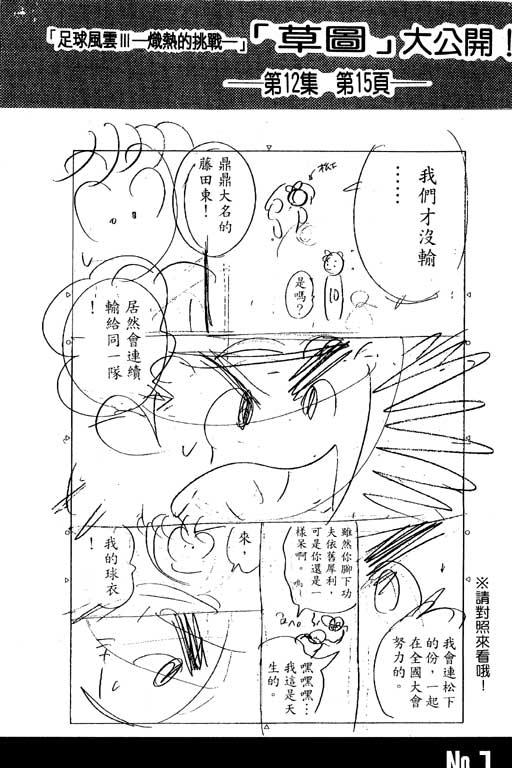 「足球風雲III—熾熱的挑戰—」「草圖」大公開!
第12集 第15頁
我們才沒輸
……
松江
是嗎?
10
鼎鼎大名的
藤田東!
居然會連續
輸給同一隊
!
來,
我的球衣
!
雖然你腳下功
夫依舊犀利,
可是你還是一
樣呆啊。
嘿嘿嘿…
我這是天
生的。
我會連松下
的份,一起
在全國大會
努力的。
※請對照來看哦!
No.1